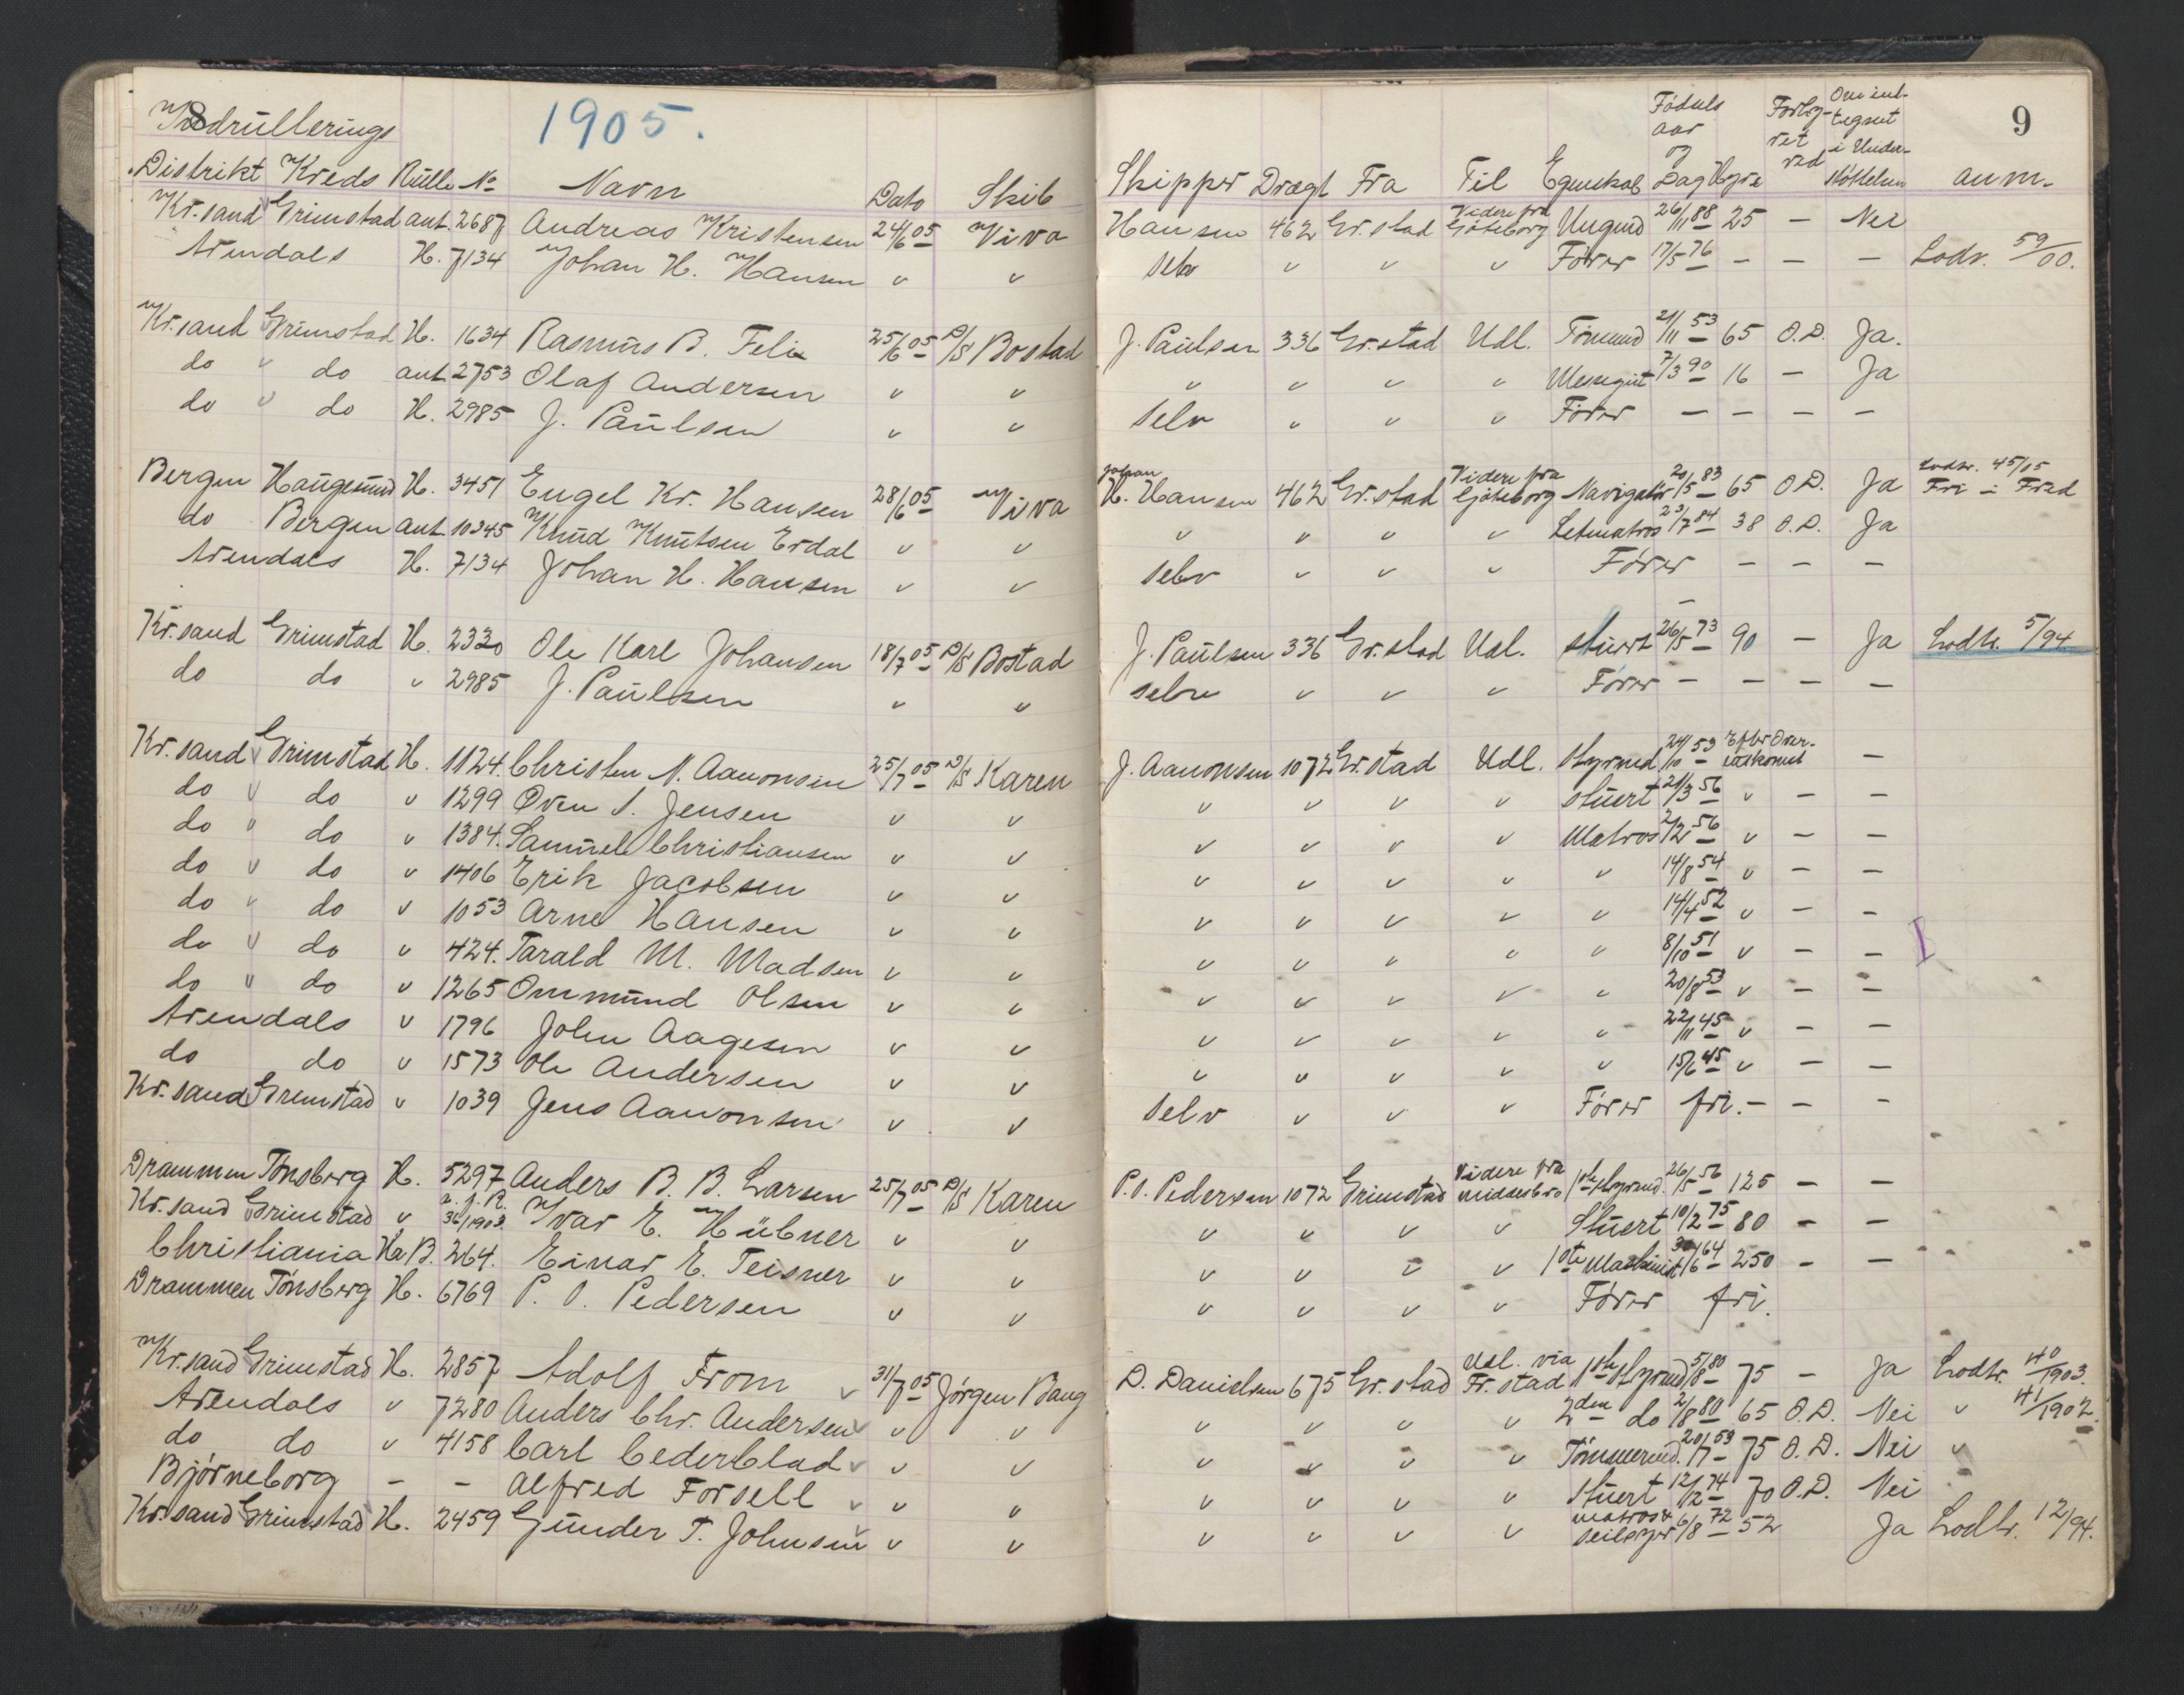 8
Indrullerings
1905.
Distrikt Kreds Rulle No Navn Dato Skib
Kr.sand Grimstad ant. 2687 Andreas Kristensen 24/6 05 Viva
Arendals H. 7134 Johan H. Hansen " "
Kr.sand Grimstad H. 1634 Rasmus B. Felix 25/6 05 D/S Bostad
do " do ant. 2753 Olaf Andersen " "
do " do H. 2985 J. Paulsen " "
Bergen Haugesund H. 3451 Engel Kr. Hansen 28/6 05 Viva
do Bergen ant. 10345 Knud Knutsen Erdal " "
Arendals H. 7134 Johan H. Hansen " "
Kr.sand Grimstad H. 2320 Ole Karl Johansen 18/7 05 D/S Bostad
do do " 2985 J. Paulsen " "
Kr.sand Grimstad H. 1124. Christen N. Aanonsen 25/7 05 D/S Karen
do " do " 1299 Oven S. Jensen " "
do " do " 1384. Samuel Christiansen " "
do " do " 1406 Erik Jacobsen " "
do " do " 1053 Arne Hansen " "
do " do " 424. Tarald M. Madsen " "
do " do " 1265 Ommund Olsen " "
Arendals " 1796 John Aagesen " "
do do " 1573 Ole Andersen " "
Kr.sand Grimstad " 1039 Jens Aanonsen " "
Drammen Tönsberg H. 5297 Anders B. B. Larsen 25/7 05 D/S Karen
Kr.sand Grimstad " 36/1903. Ivar E. Hübner " "
Christiania B. 264. Einar E. Teisner " "
Drammen Tönsberg H. 6769 P. O. Pedersen " "
Kr.sand Grimstad H. 2857 Adolf From 31/7 05 Jörgen Bang
Arendals " 7280 Anders Chr. Andersen " "
do do " 4158 Carl Cederblad " "
Björneborg - - Alfred Forsell " "
Kr.sand Grimstad H. 2459 Gunder T. Johnsen " "
9
Skipper Drægt Fra Til Egenskab Födsels aar og Dag Hyre ved Om ind- tegnet i anm.
Hansen 462 Gr.stad Videre fra Göteborg Ungmd 26/11 88 25 - Nei
selv " " " Förer 17/5 76 - - - Lodr. 59/00.
J. Paulsen 336 Gr.stad Udl. Tömmd 21/11 53 65 O.D. Ja.
" " " " Messegut 7/3 90 16 - Ja
selv " " " Förer - - - -
Johan H. Hansen 462 Gr.stad Videre fra Göteborg Navigatör 20/5 83 65 O.D. Ja Lodsr. 45/05 Fri i Fred
" " " " Letmatros 23/7 84 38 O.D. Ja
selv " " " Förer - - -
J. Paulsen 336 Gr.stad Udl. stuert 26/5 73 90 - Ja Lodtr. 5/94.
selv " " " Förer - - - -
J. Aanonsen 1072 Gr.stad Udl. Styrmd 24/10 53 Efter Over- enskomst -
" " " " stuert 21/3 56 " - -
" " " " Matros 2/2 56 " - -
" " " " " 14/8 54 " - -
" " " " " 14/4 52 " - -
" " " " " 8/10 51 " - -
" " " " " 20/8 53 " - -
" " " " " 22/11 45 " - -
" " " " " 15/6 45 " - -
selv " " " Förer fri. - - -
P. O. Pedersen 1072 Grimstad Videre fra Midlesbro 1ste Styrmd. 26/5 56 125 - -
" " " " Stuert 10/2 75 80 - -
" " " " 1ste Maskinist 30/6 64 250 - -
" " " " Förer fri.
D. Danielsen 675 Gr.stad Udl. via Fr.stad 1ste Styrmd 5/8 80 75 - Ja Lodtr. 40/1903.
" " " " 2den do 2/8 80 65 O.D. Nei " 41/1902.
" " " " Tömmermd. 20/7 53 75 O.D. Nei "
" " " " stuert 12/12 74 70 O.D. Nei
" " " " matros & seilsyer 6/8 72 52 Ja Lodtr. 12/94.